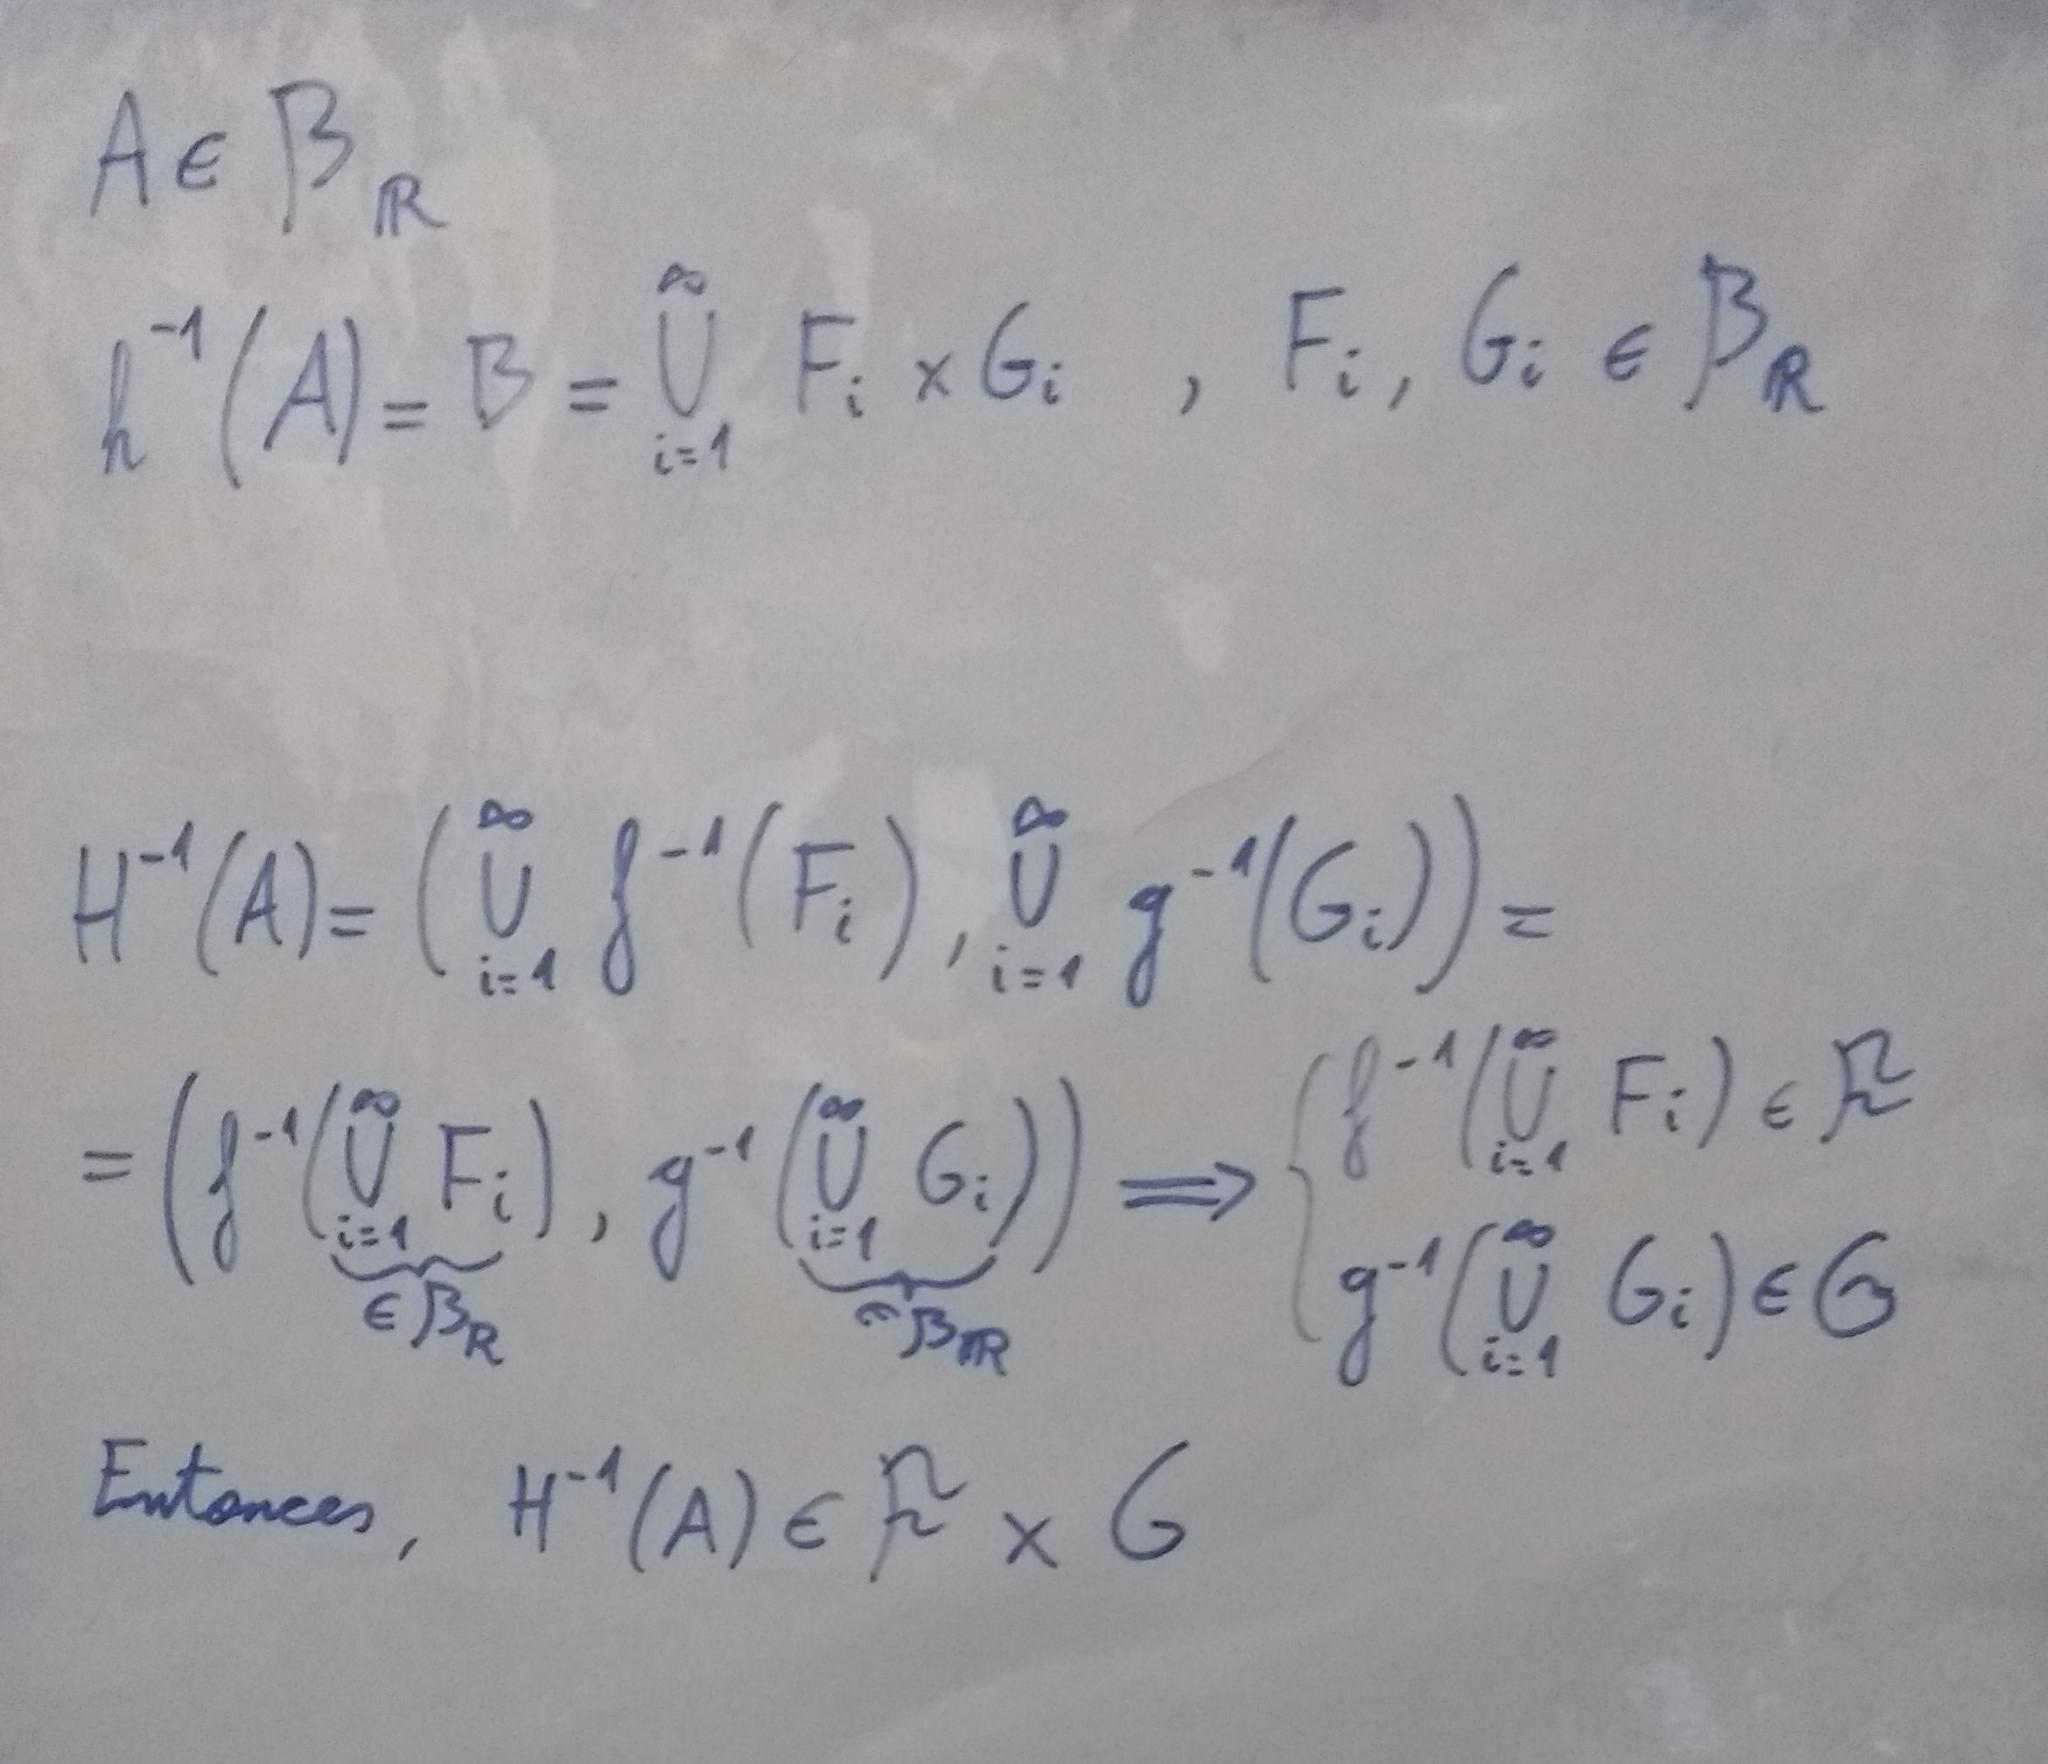 A ∈ 𝓑_ℝ
h⁻¹(A) = B = ⋃_{i=1}^∞ F_i × G_i , F_i, G_i ∈ 𝓑_ℝ
H⁻¹(A) = ( ⋃_{i=1}^∞ f⁻¹(F_i), ⋃_{i=1}^∞ g⁻¹(G_i) ) =
= ( f⁻¹( ⋃_{i=1}^∞ F_i ), g⁻¹( ⋃_{i=1}^∞ G_i ) ) ⟹ { f⁻¹( ⋃_{i=1}^∞ F_i ) ∈ 𝓕
∈ 𝓑_ℝ ∈ 𝓑_ℝ g⁻¹( ⋃_{i=1}^∞ G_i ) ∈ G
Entonces, H⁻¹(A) ∈ 𝓕 × G